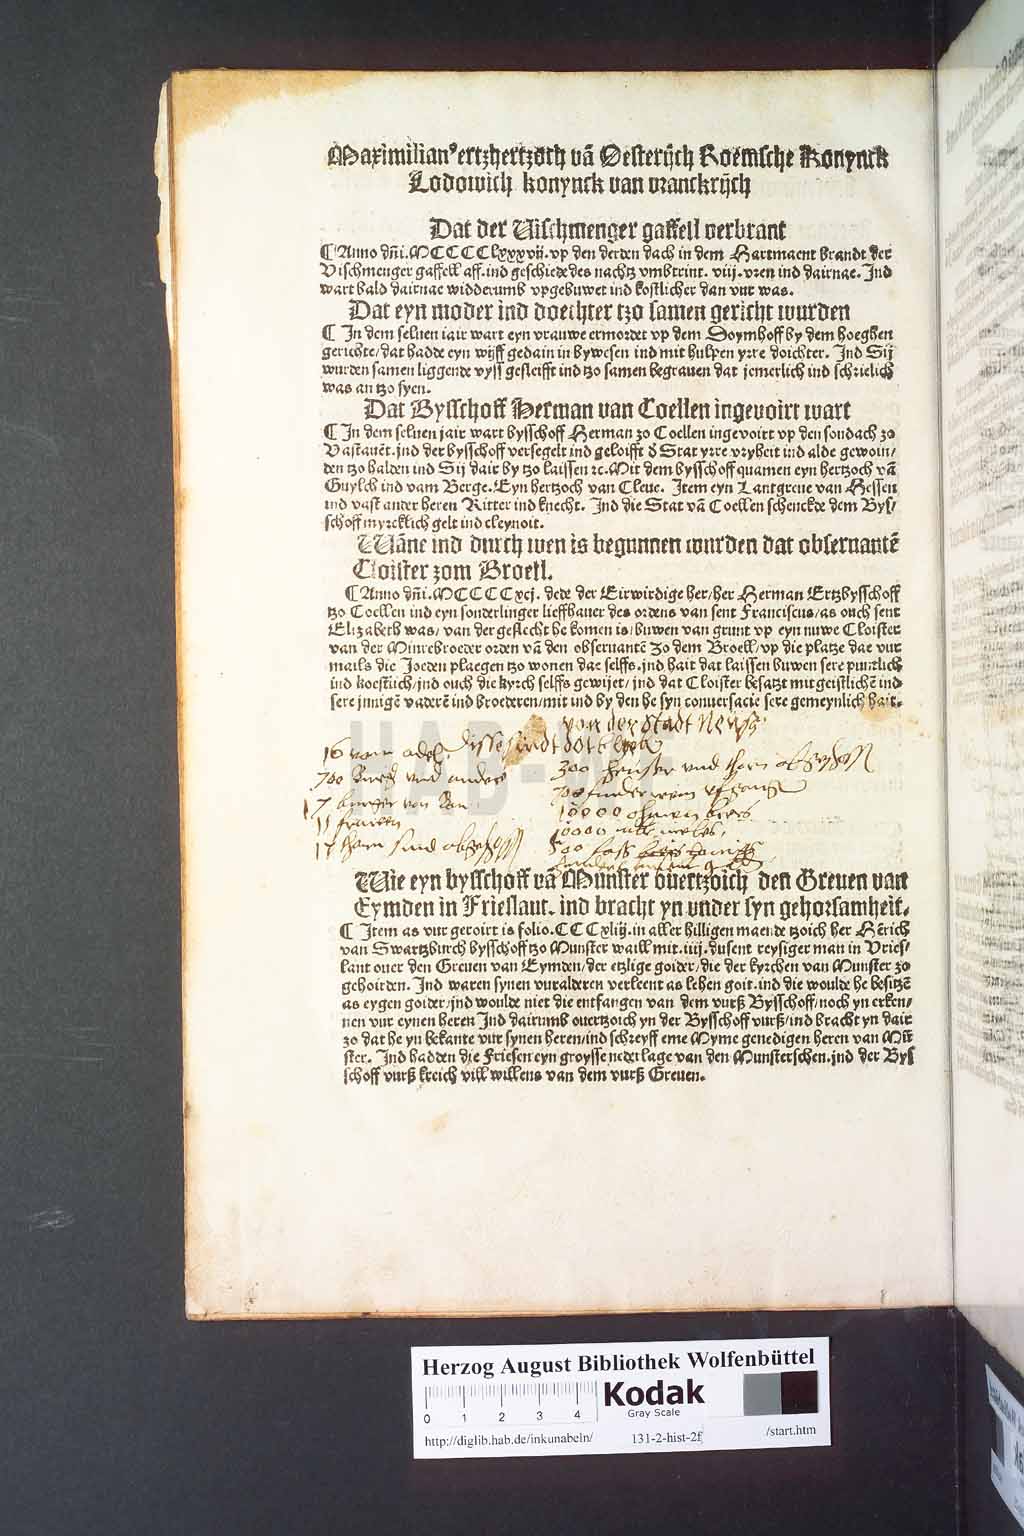 Maximilianꝰ ertzhertzoch vā Oesterijch Roemsche Konynck
Lodowich konynck van vranckrijch
Dat der Vischmenger gaffell verbrant
¶ Anno dñi. MCCCClxxxvij. vp den derden dach in dem Hartmaent brandt der
Vischmenger gaffell aff. ind geschiede des nachtz vmbtrint. viij. vren ind dairnae. Ind
wart bald dairnae widderumb vpgebuwet ind kostlicher dan vur was.
Dat eyn moder ind doechter tzo samen gericht wurden
¶ In dem seluen iair wart eyn vrauwe ermordet vp dem Doymhoff by dem hoeghen
gerichte/dat hadde eyn wijff gedain in bywesen ind mit hulpen yrre doichter. Ind Sij
wurden samen liggende vyss gesleifft ind tzo samen begrauen dat jemerlich ind schrielich
was an tzo syen.
Dat Bysschoff Herman van Coellen ingevoirt wart
¶ In dem seluen jair wart bysschoff Herman zo Coellen ingevoirt vp den sondach zo
Vastauēt. jnd der bysschoff versegelt ind geloifft d Stat yrre vryheit ind alde gewoin/
den tzo halden ind Sij dair by tzo laissen ꝛc. Mit dem bysschoff quamen eyn hertzoch vā
Guylch ind vam Berge. Eyn hertzoch van Cleue. Item eyn Lantgreue van Hessen
ind vast ander heren Ritter ind knecht. Ind die Stat vā Coellen schenckde dem Bys/
schoff myrcklich gelt ind cleynoit.
Wāne ind durch wen is begunnen wurden dat obseruantē
Cloister zom Broell.
¶ Anno dñi. MCCCCxcj. dede der Eirwirdige her/her Herman Ertzbysschoff
tzo Coellen ind eyn sonderlinger lieffhauer des ordens van sent Franciscus/as ouch sent
Elizabeth was/van der geslecht he komen is/buwen van grunt vp eyn nuwe Cloister
van der Minrebroeder orden vā den obseruantē Zo dem Broell/vp die platze dae vur
mails die Joeden plaegen tzo wonen dae selffs. jnd hait dat laissen buwen sere puntzlich
ind koestlich/jnd ouch die kyrch selffs gewijet/jnd dat Cloister besatzt mit geistlichē ind
sere jnnigē vaderē ind broederen/mit ind by den he syn conuersacie sere gemeynlich hait.
von der Stadt Neuss
16 vom adel
700 und andere
300 heuser und
17 burger von
11 frauwen
10000
10000
17 thorn sind
500
Wie eyn bysschoff vā Munster ouertzoich den Greuen van
Eymden in Frieslant. ind bracht yn vnder syn gehorsamheit.
¶ Item as vur geroirt is folio. CCCxliij. in aller hilligen maende tzoich her Hērich
van Swartzburch bysschoff tzo Munster waill mit. iiij. dusent reysiger man in Vries/
lant ouer den Greuen van Eymden/der etzlige goider/die der kyrchen van Munster zo
gehoirden. Ind waren synen vuralderen verleent as lehen goit. ind die woulde he besitzē
as eygen goider/jnd woulde niet die entfangen van dem vurß Bysschoff/noch yn erken/
nen vur eynen heren Ind dairumb ouertzoich yn der Bysschoff vurß/ind bracht yn dair
zo dat he yn bekante vur synen heren/ind schreyff eme Myme genedigen heren van Mū
ster. Ind hadden die Friesen eyn groysse nederlage van den Munsterschen. jnd der Bys
schoff vurß kreich vill willens van dem vurß Greuen.
Herzog August Bibliothek Wolfenbüttel
Kodak
Gray Scale
0 1 2 3 4
http://diglib.hab.de/inkunabeln/ 131-2-hist-2f /start.htm